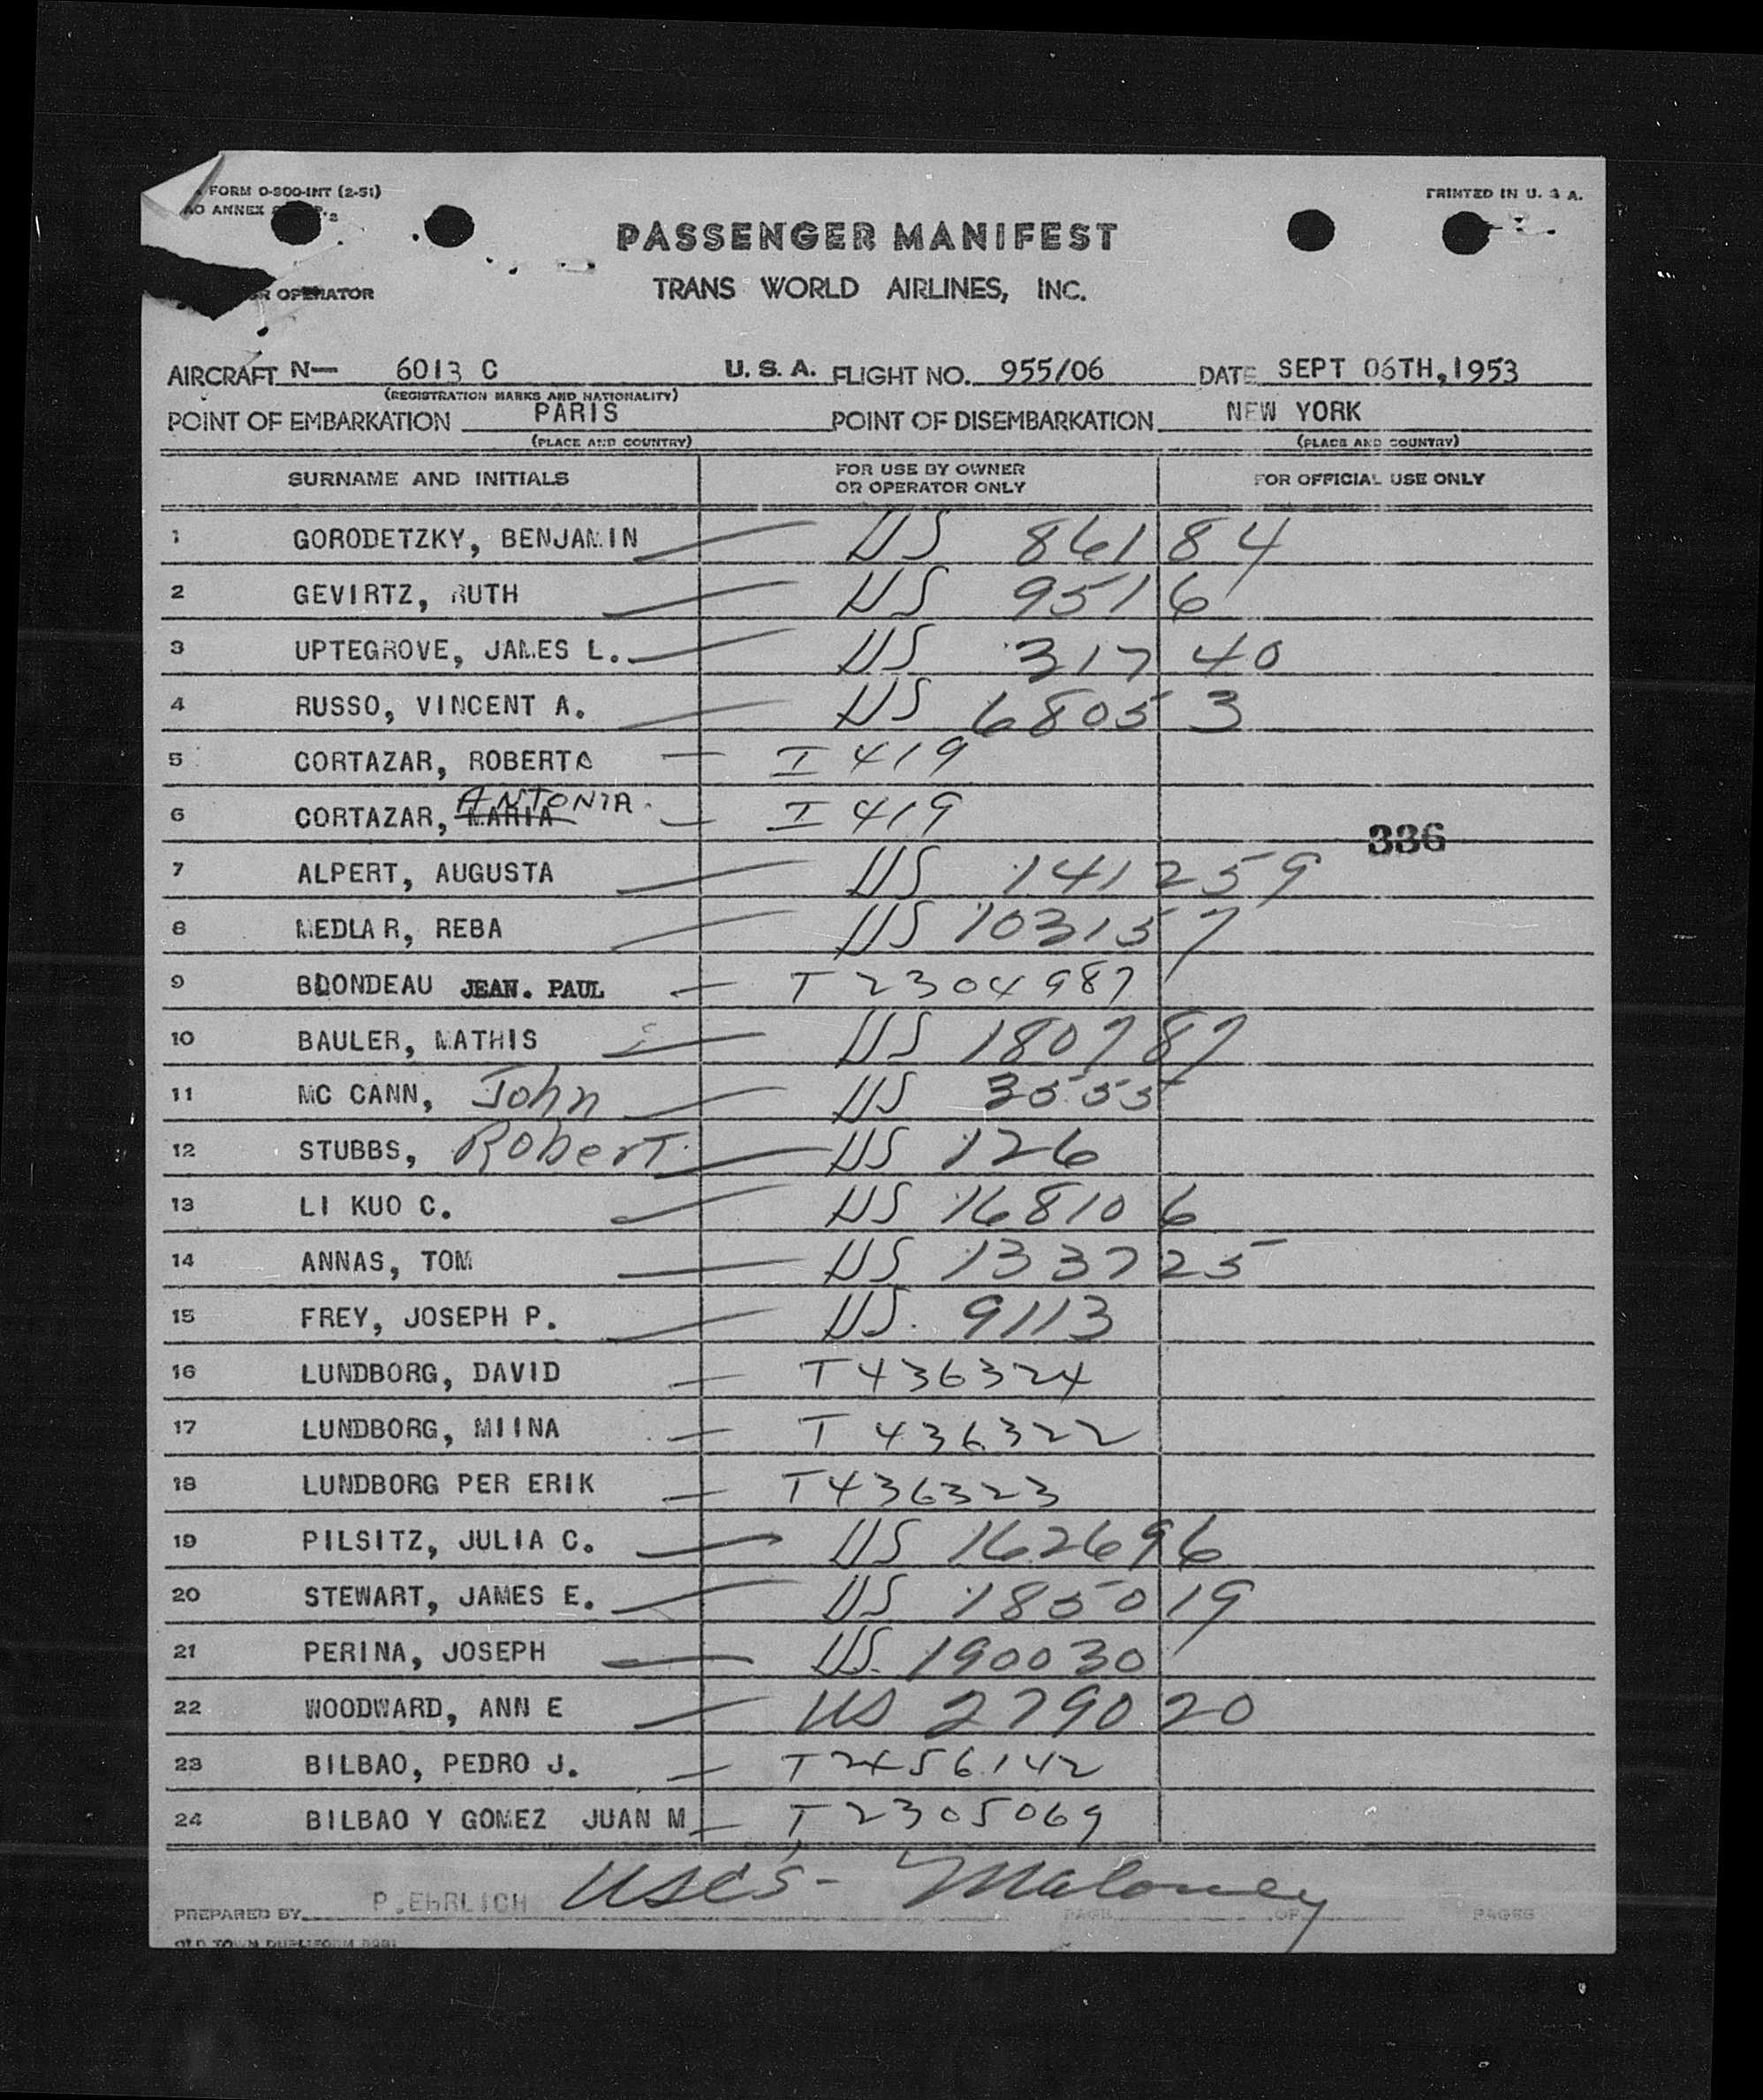 FORM O-800-INT (2-51)
PRINTED IN U. S A.
AO ANNEX
PASSENGER MANIFEST
TRANS WORLD AIRLINES, INC.
OR OPERATOR
AIRCRAFT N— 6013 C U. S. A. FLIGHT NO. 955/06 DATE SEPT 06TH, 1953
(REGISTRATION MARKS AND NATIONALITY)
POINT OF EMBARKATION PARIS POINT OF DISEMBARKATION NEW YORK
(PLACE AND COUNTRY) (PLACE AND COUNTRY)
SURNAME AND INITIALS FOR USE BY OWNER OR OPERATOR ONLY FOR OFFICIAL USE ONLY
1 GORODETZKY, BENJAMIN — US 86184
2 GEVIRTZ, RUTH — US 9516
3 UPTEGROVE, JAMES L. — US 31740
4 RUSSO, VINCENT A. — US 68053
5 CORTAZAR, ROBERTO — I 419
6 CORTAZAR, MARIA ANTONIA. — I 419
336
7 ALPERT, AUGUSTA — US 141259
8 MEDLAR, REBA — US 103157
9 BLONDEAU JEAN. PAUL — T 2304987
10 BAULER, MATHIS — US 180787
11 MC CANN, John — US 3555
12 STUBBS, Robert — US 126
13 LI KUO C. — US 168106
14 ANNAS, TOM — US 133725
15 FREY, JOSEPH P. — US. 9113
16 LUNDBORG, DAVID — T 436324
17 LUNDBORG, MIINA — T 436322
18 LUNDBORG PER ERIK — T 436323
19 PILSITZ, JULIA C. — US 162696
20 STEWART, JAMES E. — US 185019
21 PERINA, JOSEPH — US. 190030
22 WOODWARD, ANN E — US 279020
23 BILBAO, PEDRO J. — T 2456142
24 BILBAO Y GOMEZ JUAN M — T 2305069
USC's - Maloney
PREPARED BY P.EHRLICH PAGE OF PAGES
OLD TOWN DUPLIFORM